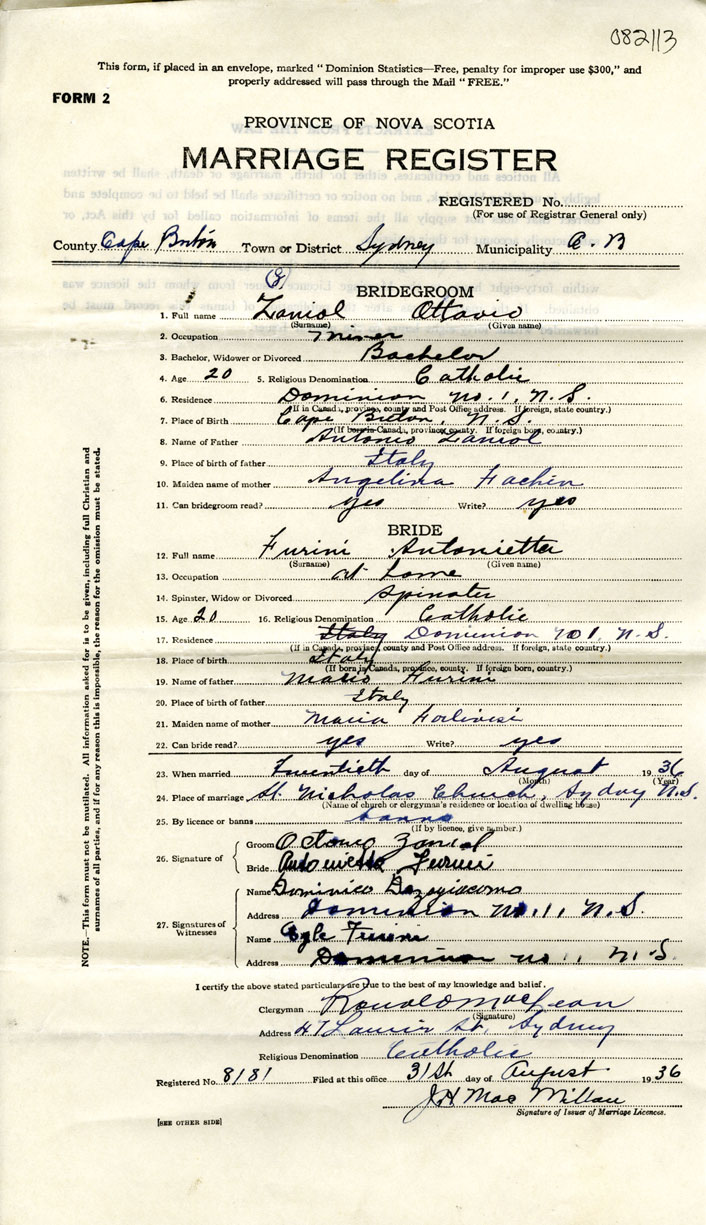 082113
This form, if placed in an envelope, marked "Dominion Statistics—Free, penalty for improper use $300," and
properly addressed will pass through the Mail "FREE."
FORM 2
PROVINCE OF NOVA SCOTIA
MARRIAGE REGISTER
REGISTERED No.
(For use of Registrar General only)
County Cape Breton Town or District Sydney Municipality C. B
(8)
BRIDEGROOM
1. Full name Zaniol Ottavio
(Surname) (Given name)
2. Occupation Miner
3. Bachelor, Widower or Divorced Bachelor
4. Age 20 5. Religious Denomination Catholic
6. Residence Dominion No. 1, N.S.
(If in Canada, province, county and Post Office address. If foreign, state country.)
7. Place of Birth Cape Breton, N.S.
(If born in Canada, province, county. If foreign born, country.)
8. Name of Father Antonio Zaniol
9. Place of birth of father Italy
10. Maiden name of mother Angelina Fachin
11. Can bridegroom read? yes Write? yes
BRIDE
12. Full name Furini Antonietta
(Surname) (Given name)
13. Occupation at home
14. Spinster, Widow or Divorced Spinster
15. Age 20 16. Religious Denomination Catholic
17. Residence Italy Dominion No 1, N.S.
(If in Canada, province, county and Post Office address. If foreign, state country.)
18. Place of birth Italy
(If born in Canada, province, county. If foreign born, country.)
19. Name of father Mario Furini
20. Place of birth of father Italy
21. Maiden name of mother Maria Forlivisi
22. Can bride read? yes Write? yes
23. When married Twentieth day of August 1936
(Month) (Year)
24. Place of marriage St. Nicholas Church, Sydney N.S.
(Name of church or clergyman's residence or location of dwelling house)
25. By licence or banns banns
(If by licence, give number.)
26. Signature of
Groom Zaniol
Bride Antonietta Furini
27. Signatures of Witnesses
Name Dominico Dazegiacomo
Address Dominion No. 1, N.S.
Name Egle Furini
Address Dominion No 1, N.S.
I certify the above stated particulars are true to the best of my knowledge and belief.
Clergyman Ronald MacLean
(Signature)
Address 47 Laurier St, Sydney
Religious Denomination Catholic
Registered No. 8181 Filed at this office 31st day of August 1936
J H MacMillan
Signature of Issuer of Marriage Licences.
[SEE OTHER SIDE]
NOTE.—This form must not be mutilated. All information asked for is to be given, including full Christian and
surnames of all parties, and if for any reason this is impossible, the reason for the omission must be stated.